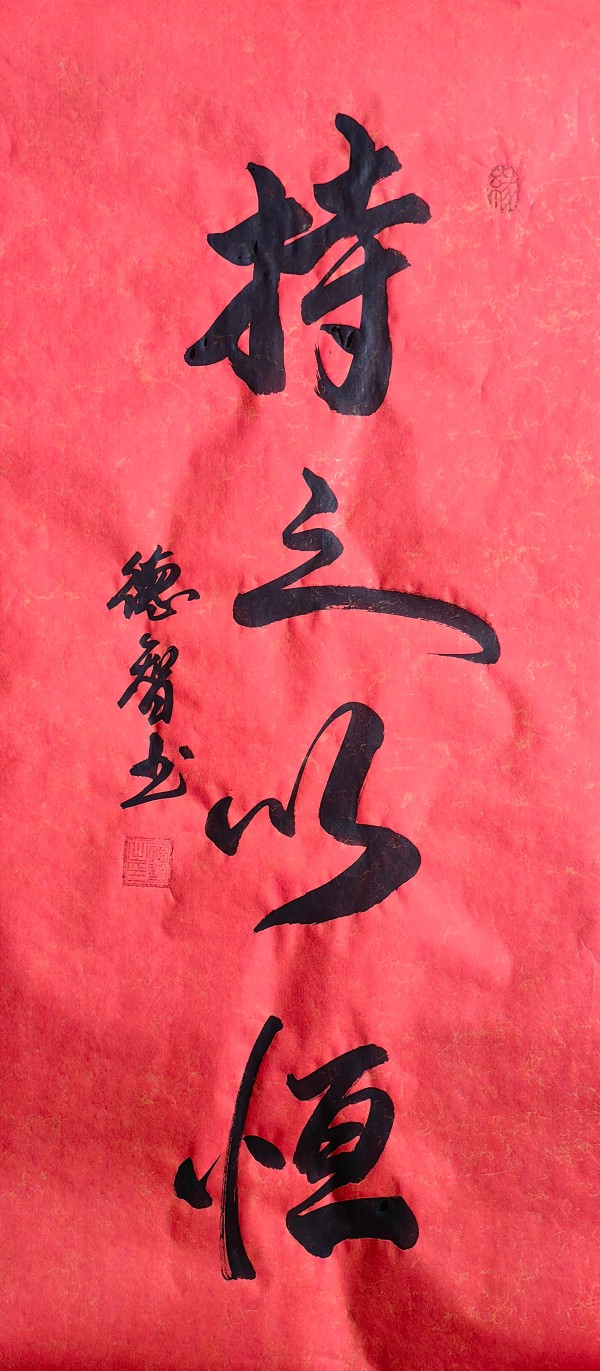 持之以恒
德智书